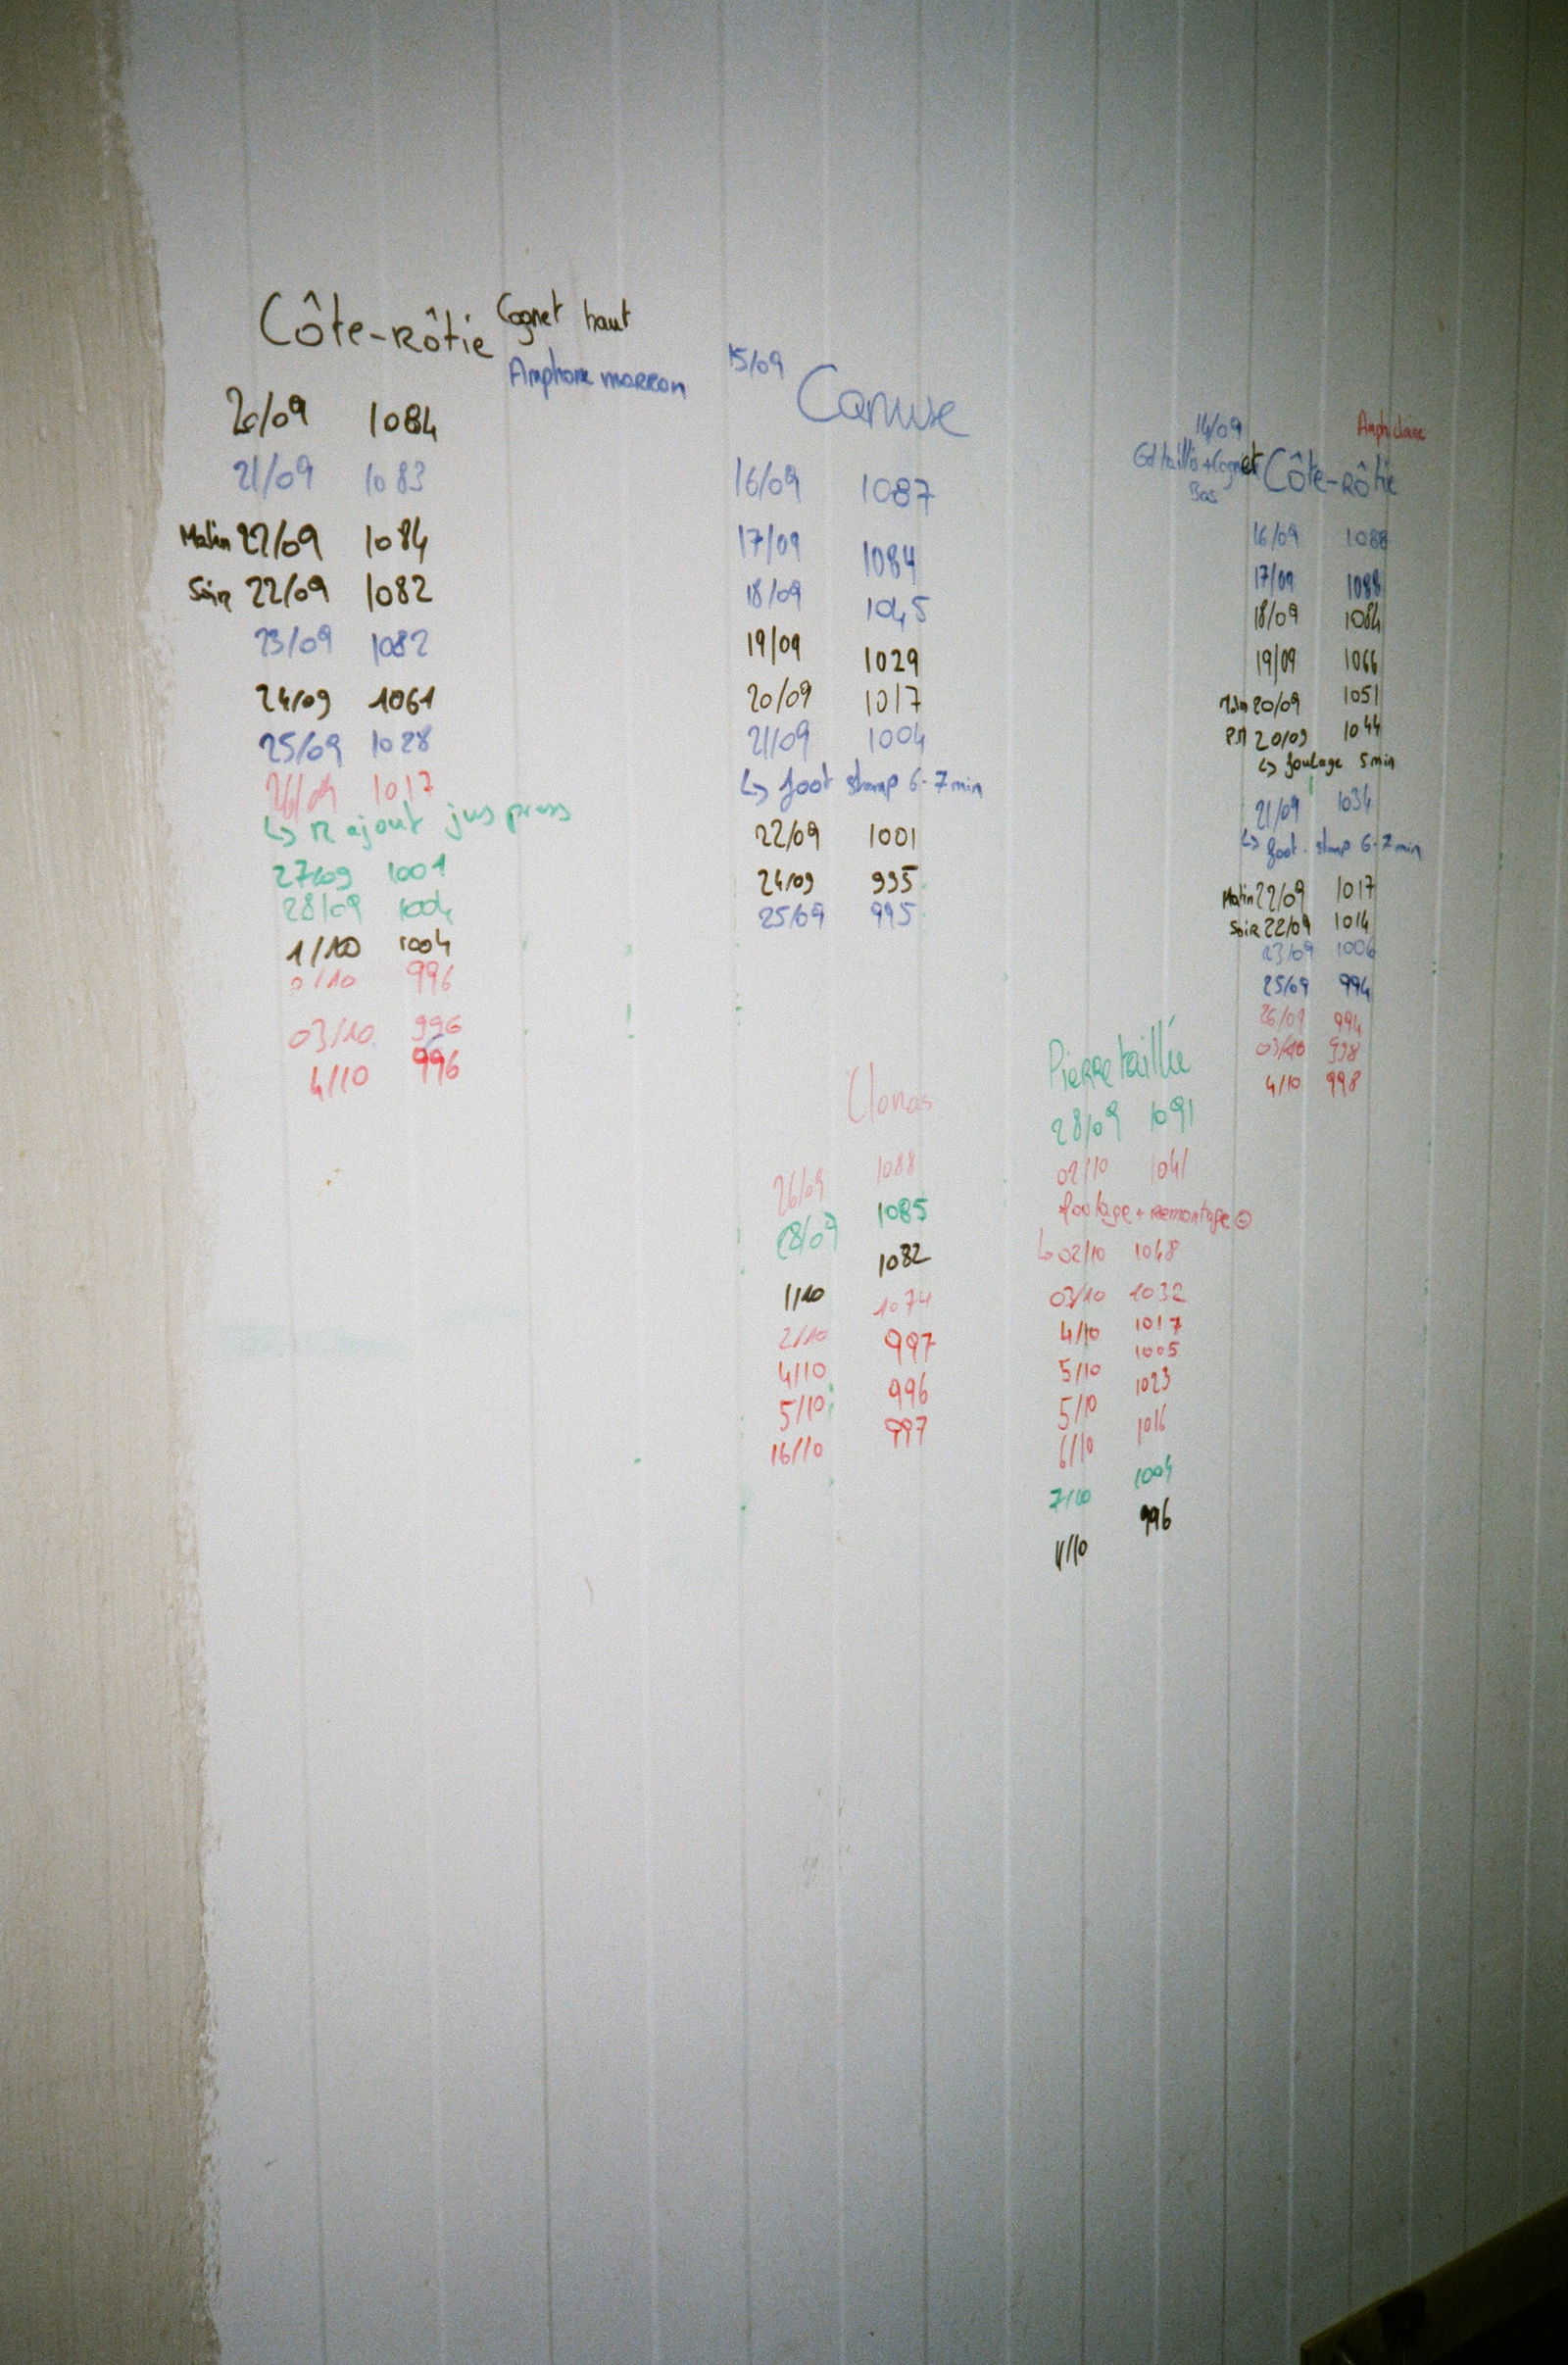 Côte-Rôtie Cognet haut
Amphore marron
20/09 1084
21/09 1083
Matin 22/09 1084
Soir 22/09 1082
23/09 1082
24/09 1061
25/09 1028
26/09 1017
↳ R ajout jus press
27/09 1001
28/09 1004
1/10 1004
996
03/10 996
4/10 996
15/09
16/09 1087
17/09 1084
18/09 1045
19/09 1029
20/09 1017
21/09 1004
↳ foot stomp 6-7 min
22/09 1001
24/09 995
25/09 995
14/09
Cognet
Bas
Côte-Rôtie
16/09 1088
17/09 1088
18/09 1084
19/09 1066
Matin 20/09 1051
20/09 1044
↳ foulage 5 min
21/09 1034
↳ foot stomp 6-7 min
Matin 22/09 1017
Soir 22/09 1014
23/09 1006
25/09 994
26/09 994
03/10 998
4/10 998
Clonas
26/09 1088
28/09 1085
1/10 1082
2/10 1074
4/10 997
5/10 996
16/10 997
Pierre taillée
28/09 1091
02/10 1041
foulage + remontage
↳ 02/10 1048
03/10 1032
4/10 1017
5/10 1005
5/10 1023
6/10 1016
7/10 1004
996